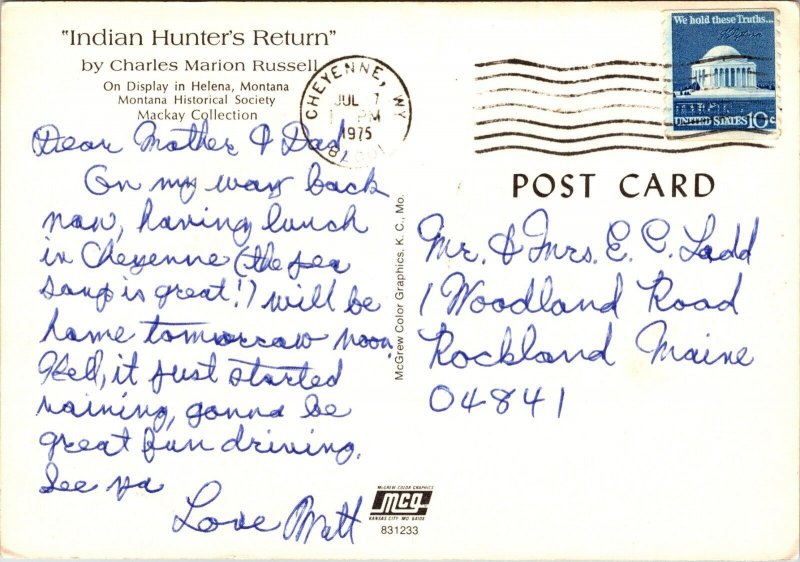 "Indian Hunter's Return"
by Charles Marion Russell
On Display in Helena, Montana
Montana Historical Society
Mackay Collection
CHEYENNE, WY
JUL 7
PM
1975
We hold these Truths...
UNITED STATES 10c
POST CARD
Dear Mother & Dad
On my way back
now, having lunch
in Cheyenne (the pea
soup is great!) will be
home tomorrow noon.
Well, it just started
raining, gonna be
great fun driving.
See ya
Love Matt
McGrew Color Graphics, K. C., Mo.
Mr. & Mrs. E. C. Ladd
1 Woodland Road
Rockland Maine
04841
McGREW COLOR GRAPHICS
mcg
KANSAS CITY, MO. 64108
831233